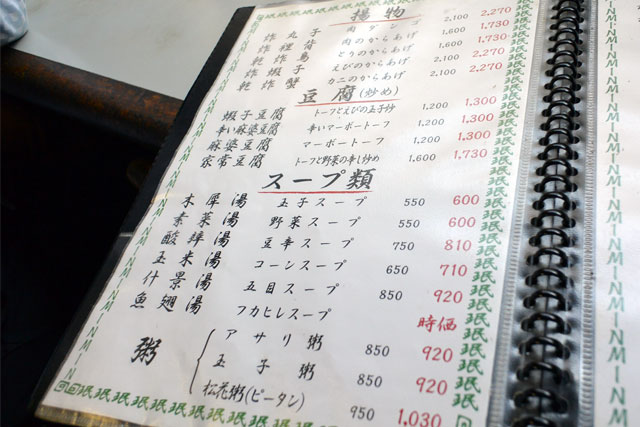 揚物
炸丸子 肉ダンゴ 2,100 2,270
炸裡脊 肉のからあげ 1,600 1,730
乾炸鳥 とりのからあげ 1,600 1,730
乾炸蝦子 えびのからあげ 2,100 2,270
炸蟹 カニのからあげ 2,100 2,270
豆腐(炒め)
蝦子豆腐 トーフとえびの玉子炒 1,200 1,300
辛い麻婆豆腐 辛いマーボートーフ 1,200 1,300
麻婆豆腐 マーボートーフ 1,200 1,300
家常豆腐 トーフと野菜の辛し炒め 1,600 1,730
スープ類
木犀湯 玉子スープ 550 600
素菜湯 野菜スープ 550 600
酸辣湯 豆辛スープ 750 810
玉米湯 コーンスープ 650 710
什景湯 五目スープ 850 920
魚翅湯 フカヒレスープ 時価
粥
アサリ粥 850 920
玉子粥 850 920
松花粥(ピータン) 950 1,030